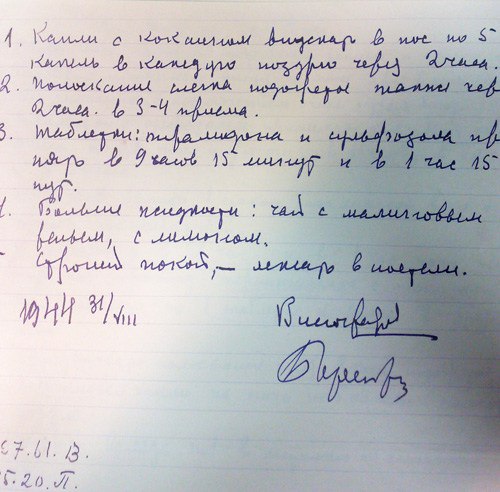 1. Капли с кокаином впускать в нос по 5
капель в каждую ноздрю через 2 часа.
2. Полоскание слегка подогретое также чер
2 часа. в 3-4 приема.
3. Таблетки: пирамидона и сульфазола при
нять в 9 часов 15 минут и в 1 час 15
нут.
Больше жидкости: чай с малиновым
реньем, с лимоном.
Строгий покой, – лежать в постели.
1944 31/VIII
Виноградов
67.61. В.
5.20. П.